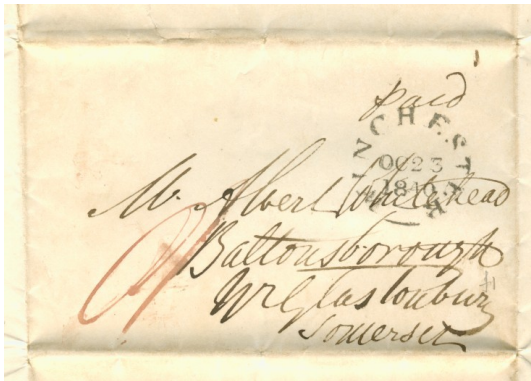 paid
INCHESTER
OC 23
1840
Mr. Albert Whitehead
Baltonsborough
Nr Glastonbury
Somerset